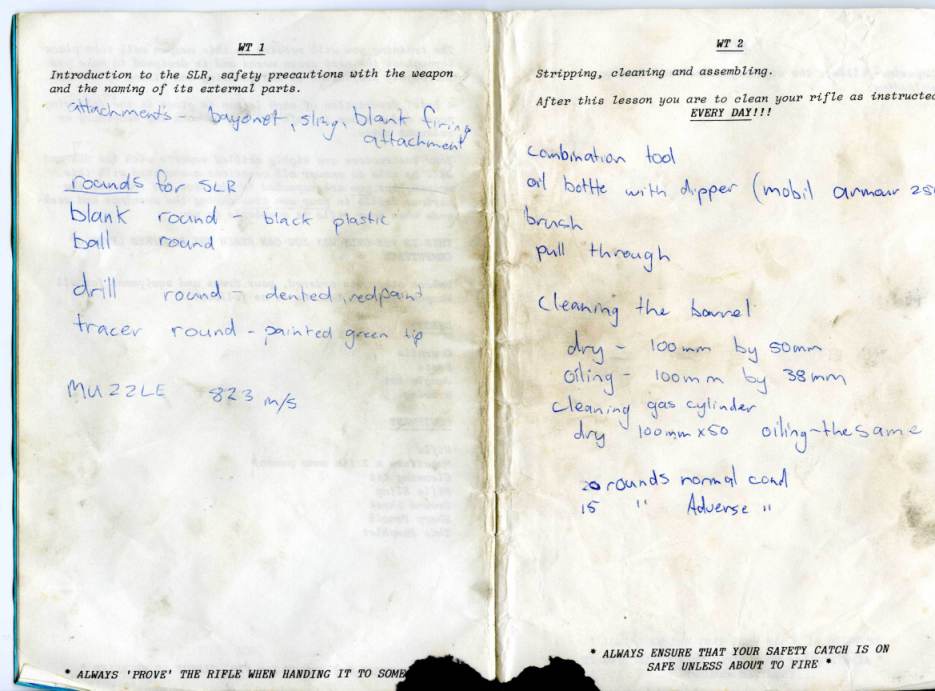 WT 1
Introduction to the SLR, safety precautions with the weapon
and the naming of its external parts.
attachments - bayonet, sling, blank firing
attachment
rounds for SLR
blank round - black plastic
ball round
drill round - dented, red paint
tracer round - painted green tip
MUZZLE 823 m/s
* ALWAYS 'PROVE' THE RIFLE WHEN HANDING IT TO SOME
WT 2
Stripping, cleaning and assembling.
After this lesson you are to clean your rifle as instructed
EVERY DAY!!!
combination tool
oil bottle with dipper (mobil armour 25
brush
pull through
Cleaning the barrel
dry - 100mm by 50mm
oiling - 100mm by 38mm
cleaning gas cylinder
dry 100mm x 50 oiling - the same
20 rounds normal cond
15 " Adverse "
* ALWAYS ENSURE THAT YOUR SAFETY CATCH IS ON
SAFE UNLESS ABOUT TO FIRE *